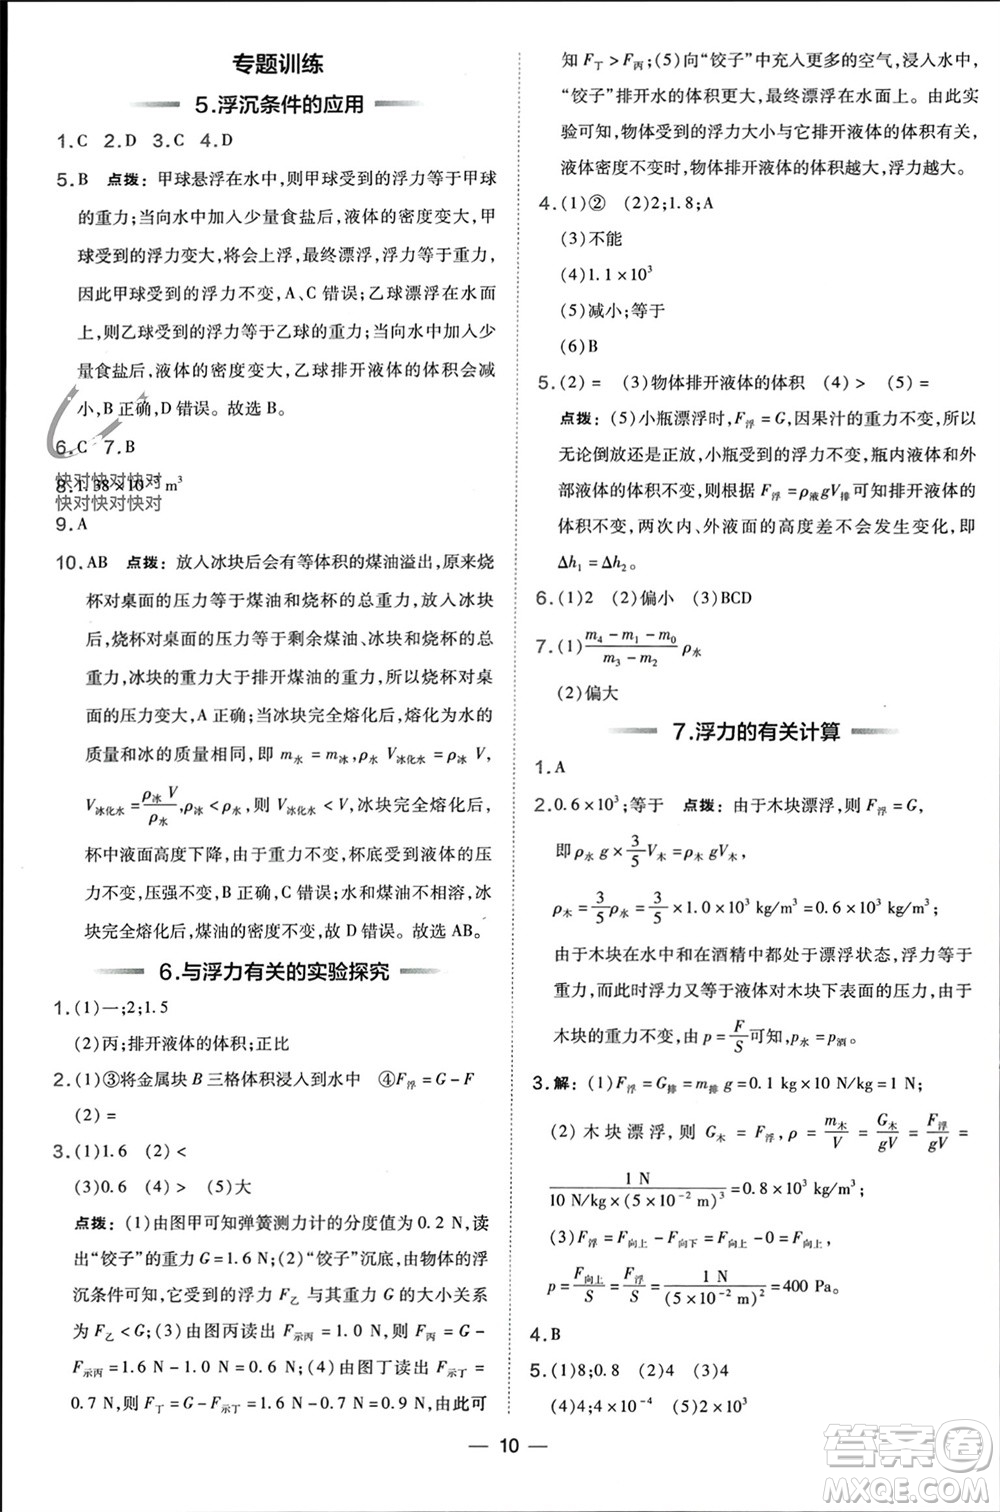 专题训练
5.浮沉条件的应用
1.C 2.D 3.C 4.D
5.B 点拨：甲球悬浮在水中,则甲球受到的浮力等于甲球
的重力;当向水中加入少量食盐后,液体的密度变大,甲
球受到的浮力变大,将会上浮,最终漂浮,浮力等于重力,
因此甲球受到的浮力不变,A、C错误;乙球漂浮在水面
上,则乙球受到的浮力等于乙球的重力;当向水中加入少
量食盐后,液体的密度变大,乙球排开液体的体积会减
小,B正确,D错误。故选B。
6.C 7.B
快对快对快对
8.1.38×10⁻³ m³
快对快对快对
9.A
10.AB 点拨：放入冰块后会有等体积的煤油溢出,原来烧
杯对桌面的压力等于煤油和烧杯的总重力,放入冰块
后,烧杯对桌面的压力等于剩余煤油、冰块和烧杯的总
重力,冰块的重力大于排开煤油的重力,所以烧杯对桌
面的压力变大,A正确;当冰块完全熔化后,熔化为水的
质量和冰的质量相同,即 m水=m冰,ρ水 V冰化水=ρ冰 V,
V冰化水=ρ冰 V/ρ水,ρ冰<ρ水,则 V冰化水<V,冰块完全熔化后,
杯中液面高度下降,由于重力不变,杯底受到液体的压
力不变,压强不变,B正确,C错误;水和煤油不相溶,冰
块完全熔化后,煤油的密度不变,故D错误。故选AB。
6.与浮力有关的实验探究
1.(1)一;2;1.5
(2)丙;排开液体的体积;正比
2.(1)③将金属块B三格体积浸入到水中 ④F浮=G-F
(2)=
3.(1)1.6 (2)<
(3)0.6 (4)> (5)大
点拨：(1)由图甲可知弹簧测力计的分度值为0.2 N,读
出“饺子”的重力G=1.6 N;(2)“饺子”沉底,由物体的浮
沉条件可知,它受到的浮力F乙与其重力G的大小关系
为F乙<G;(3)由图丙读出F示丙=1.0 N,则F丙=G-
F示丙=1.6 N-1.0 N=0.6 N;(4)由图丁读出F示丁=
0.7 N,则F丁=G-F示丁=1.6 N-0.7 N=0.9 N,由此可
知F丁>F丙;(5)向“饺子”中加入更多的空气,浸入水中,
“饺子”排开水的体积更大,最终漂浮在水面上。由此实
验可知,物体受到的浮力大小与它排开液体的体积有关,
液体密度不变时,物体排开液体的体积越大,浮力越大。
4.(1)② (2)2;1.8;A
(3)不能
(4)1.1×10³
(5)减小;等于
(6)B
5.(2)= (3)物体排开液体的体积 (4)> (5)=
点拨：(5)小瓶漂浮时,F浮=G,因果汁的重力不变,所以
无论倒放还是正放,小瓶受到的浮力不变,瓶内液体和外
部液体的密度不变,根据F浮=ρ液gV排可知排开液体的
体积不变,两次内、外液面的高度差不会发生变化,即
Δh₁=Δh₂。
6.(1)2 (2)偏小 (3)BCD
7.(1)(m₄-m₁-m₀)/(m₃-m₂) ρ水
(2)偏大
7.浮力的有关计算
1.A
2.0.6×10³;等于 点拨：由于木块漂浮,则F浮=G,
即ρ水 g×3/5V木=ρ木 gV木,
ρ木=3/5ρ水=3/5×1.0×10³ kg/m³=0.6×10³ kg/m³;
由于木块在水中和在酒精中都处于漂浮状态,浮力等于
重力,而此时浮力又等于液体对木块下表面的压力,由于
木块的重力不变,由p=F/S可知,p水=p酒。
3.解：(1)F浮=G排=m排 g=0.1 kg×10 N/kg=1 N;
(2)木块漂浮,则G木=F浮,ρ=m木/V=G木/gV=F浮/gV=
1 N/(10 N/kg×(5×10⁻² m)³)=0.8×10³ kg/m³;
(3)F浮=F向上-F向下=F向上-0=F向上=1 N,
p=F向上/S=F浮/S=1 N/(5×10⁻² m)²=400 Pa。
4.B
5.(1)8;0.8 (2)4 (3)4
(4)4;4×10⁻⁴ (5)2×10³
10
答案圈
MXQE.COM